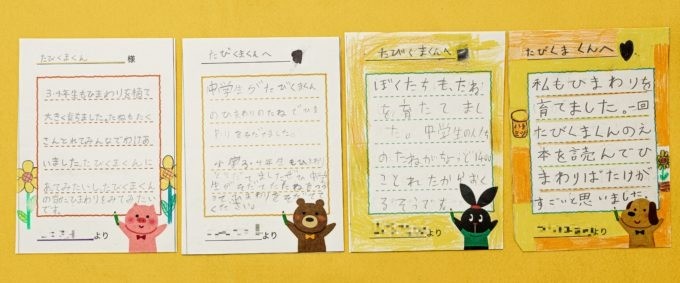 たびくまくん 様
3.4年生もひまわりを植て
大きく育ちました。たねもたく
さんとれてみんなでわけあ
いました。たびくまくんに
あてみたいしたびくまくん
の町にひまわりをみてみたい
です。
より
たびくまくんへ
中学生がたびくまくん
のひまわりのたねでひま
小学3.4年生もひま
てました。ぜひ中学
生がそだてたたねをつ
ください。
より
たびくまくんへ
ぼくたちも、たね
を育たてまし
た。中学生の人たち
のたねがちょっと1400
ことれたからおく
るそうです。
より
たびくまくんへ
私もひまわりを
育てました。一回
たびくまくんのえ
本を読んでひ
まわりばたけが
すごいと思いました。
より